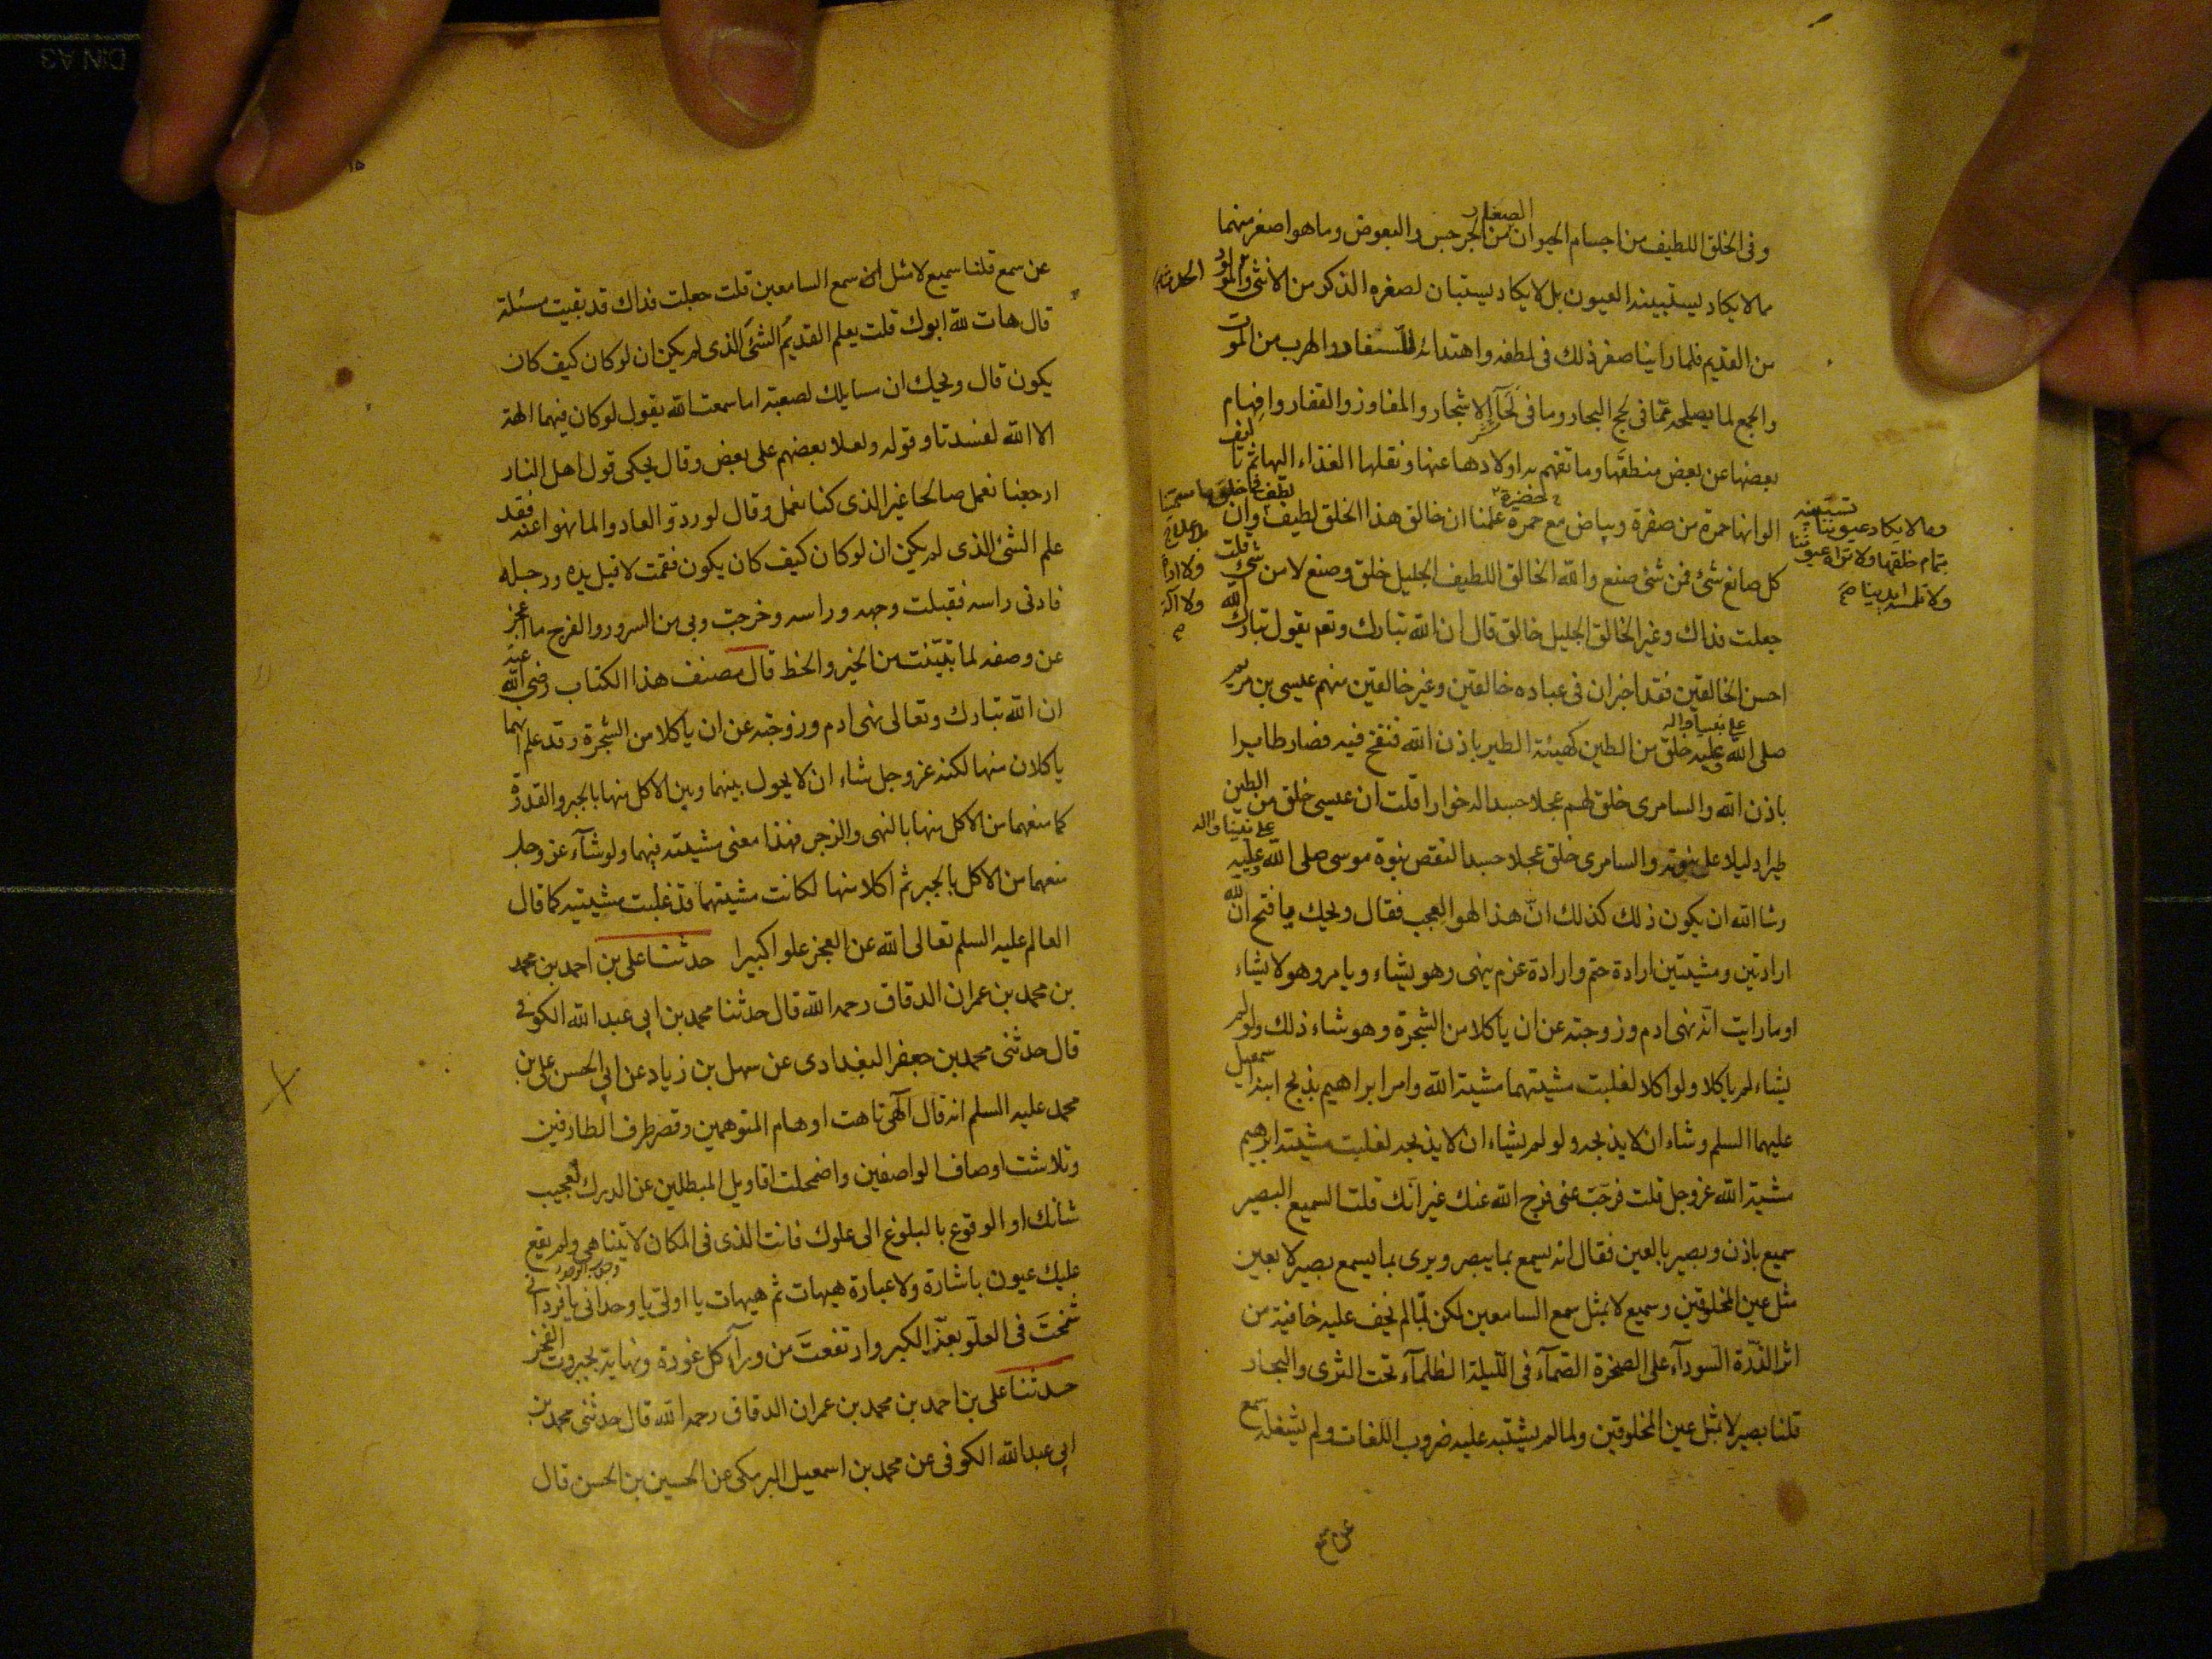 وفى الخلق اللطيف من اجسام الحيوان من الجرجس والبعوض وما هو اصغر منهما
مما لا يكاد يستبينه العيون بل لا يكاد يستبان لصغره الذكر من الانثى والمولود
من القديم فلما راينا صغر ذلك فى لطفه واهتدائه للسفاد والهرب من الموت
والجمع لما يصلحه ممّا فى لجج البحار وما فى لحآء الاشجار والمفاوز والقفار وافهام
بعضها عن بعض منطقها وما تفهم به اولادها عنها ونقلها الغذاء اليها ثم تاليف
الوانها حمرة من صفرة وبياض مع حمرة علمنا ان خالق هذا الخلق لطيف وان
كل صانع شئ فمن شئ صنع والله الخالق اللطيف الجليل خلق وصنع لا من شئ قلت
جعلت فداك وغير الخالق الجليل خالق قال ان الله تبارك وتعم يقول تبارك الله
احسن الخالقين فقد اخبر ان فى عباده خالقين وغير خالقين منهم عيسى بن مريم
صلى الله وعليه خلق من الطين كهيئة الطير باذن الله فنفخ فيه فصار طايرا
باذن الله والسامرى خلق لهم عجلا جسدا له خوارا قلت ان عيسى خلق من الطين
طيرا دليلا على نبوته والسامرى خلق عجلا جسدا لنقض نبوة موسى صلى الله وعليه
وشا الله ان يكون ذلك كذلك انّ هذا لهو العجب فقال ويحك يا فتح ان لله
ارادتين ومشيتين ارادة حتم وارادة عزم ينهى وهو يشاء ويامر وهو لا يشاء
اوما رايت انه نهى ادم وزوجته عن ان ياكلا من الشجرة وهو شاء ذلك ولو لم
يشاء لم ياكلا ولو اكلا لغلبت مشيتهما مشية الله وامر ابراهيم بذبح ابنه اسمعيل
عليهما السلم وشاء ان لا يذبحه ولو لم يشاء ان لا يذبحه لغلبت مشية ابرهيم
مشية الله عز وجل قلت فرّجت عنى فرج الله عنك غير انّك قلت السميع البصير
سميع باذن وبصير بالعين فقال انه يسمع بما يبصر ويرى بما يسمع بصير لا بعين
مثل عين المخلوقين وسميع لا بمثل سمع السامعين لكن لمّا لم يخف عليه خافية من
اثر الذّرة السودآء على الصخرة الصّمآء فى اللّيلة الظلمآء تحت الثرى والبحار
قلنا بصير لا بمثل عين المخلوقين ولما لم يشتبه عليه ضروب اللغات ولم يشغله سمع
عن سمع
الصغار
لخضرة
على نبينا واله
على نبينا واله
وما لا يكاد عيوننا تستبينه
بتمام خلقها ولا تراه عيوننا
ولا تلمسه ايدينا صح
ولا اداة
ولا آلة
١٥
عن سمع قلنا سميع لا مثل سمع السامعين قلت جعلت فداك قد بقيت مسئلة
قال هات لله ابوك قلت يعلم القديم الشئ الذى لم يكن ان لو كان كيف كان
يكون قال ويحك ان مسايلك لصعبة اما سمعت الله يقول لو كان فيهما الهة
الا الله لفسدتا وقوله ولعلا بعضهم على بعض وقال يحكى قول اهل النار
ارجعنا نعمل صالحا غير الذى كنا نعمل وقال لو ردّوا لعادوا لما نهوا عنه فقد
علم الشئ الذى لم يكن ان لو كان كيف كان يكون فقمت لا قبل يده ورجله
فادنى راسه فقبلت وجهه وراسه وخرجت وبى من السرور والفرح ما اعجز
عن وصفه لما تبيّنت من الخير والحظ قال مصنف هذا الكتاب رضى الله عنه
ان الله تبارك وتعالى نهى ادم وزوجته عن ان ياكلا من الشجرة وقد علم انهما
ياكلان منها لكنه عز وجل شاء ان لا يحول بينهما وبين الاكل منها بالجبر والقدرة
كما منعهما من الاكل منها بالنهى والزجر فهذا معنى مشيته فيهما ولو شآء عز وجل
منعهما من الاكل بالجبر ثم اكلا منها لكانت مشيتهما قد غلبت مشيته كما قال
العالم عليه السلم تعالى الله عن العجز علوا كبيرا حدثنا على بن احمد بن محمد
بن محمد بن عمران الدقاق رحمه الله قال حدثنا محمد بن ابى عبد الله الكوفى
قال حدثنى محمد بن جعفر البغدادى عن سهل بن زياد عن ابى الحسن على بن
محمد عليه السلم انه قال الهى تاهت اوهام المتوهمين وقصر طرف الطارفين
وتلاشت اوصاف الواصفين واضمحلت اقاويل المبطلين عن الدرك لعجيب
شانك او الوقوع بالبلوغ الى علوك فانت الذى فى المكان لا يتناهى ولم يقع
عليك عيون باشارة ولا عبارة هيهات ثم هيهات يا اولىّ يا وحدانى يا فردانى
شمختَ فى العلّو بعزّ الكبر وارتفعتَ من ورآء كل غورة ونهاية بجبروت الفخر
حدثنا على بن احمد بن محمد بن عمران الدقاق رحمه الله قال حدثنى محمد بن
ابى عبد الله الكوفى عن محمد بن اسمعيل البرمكى عن الحسين بن الحسن قال
DIN A3